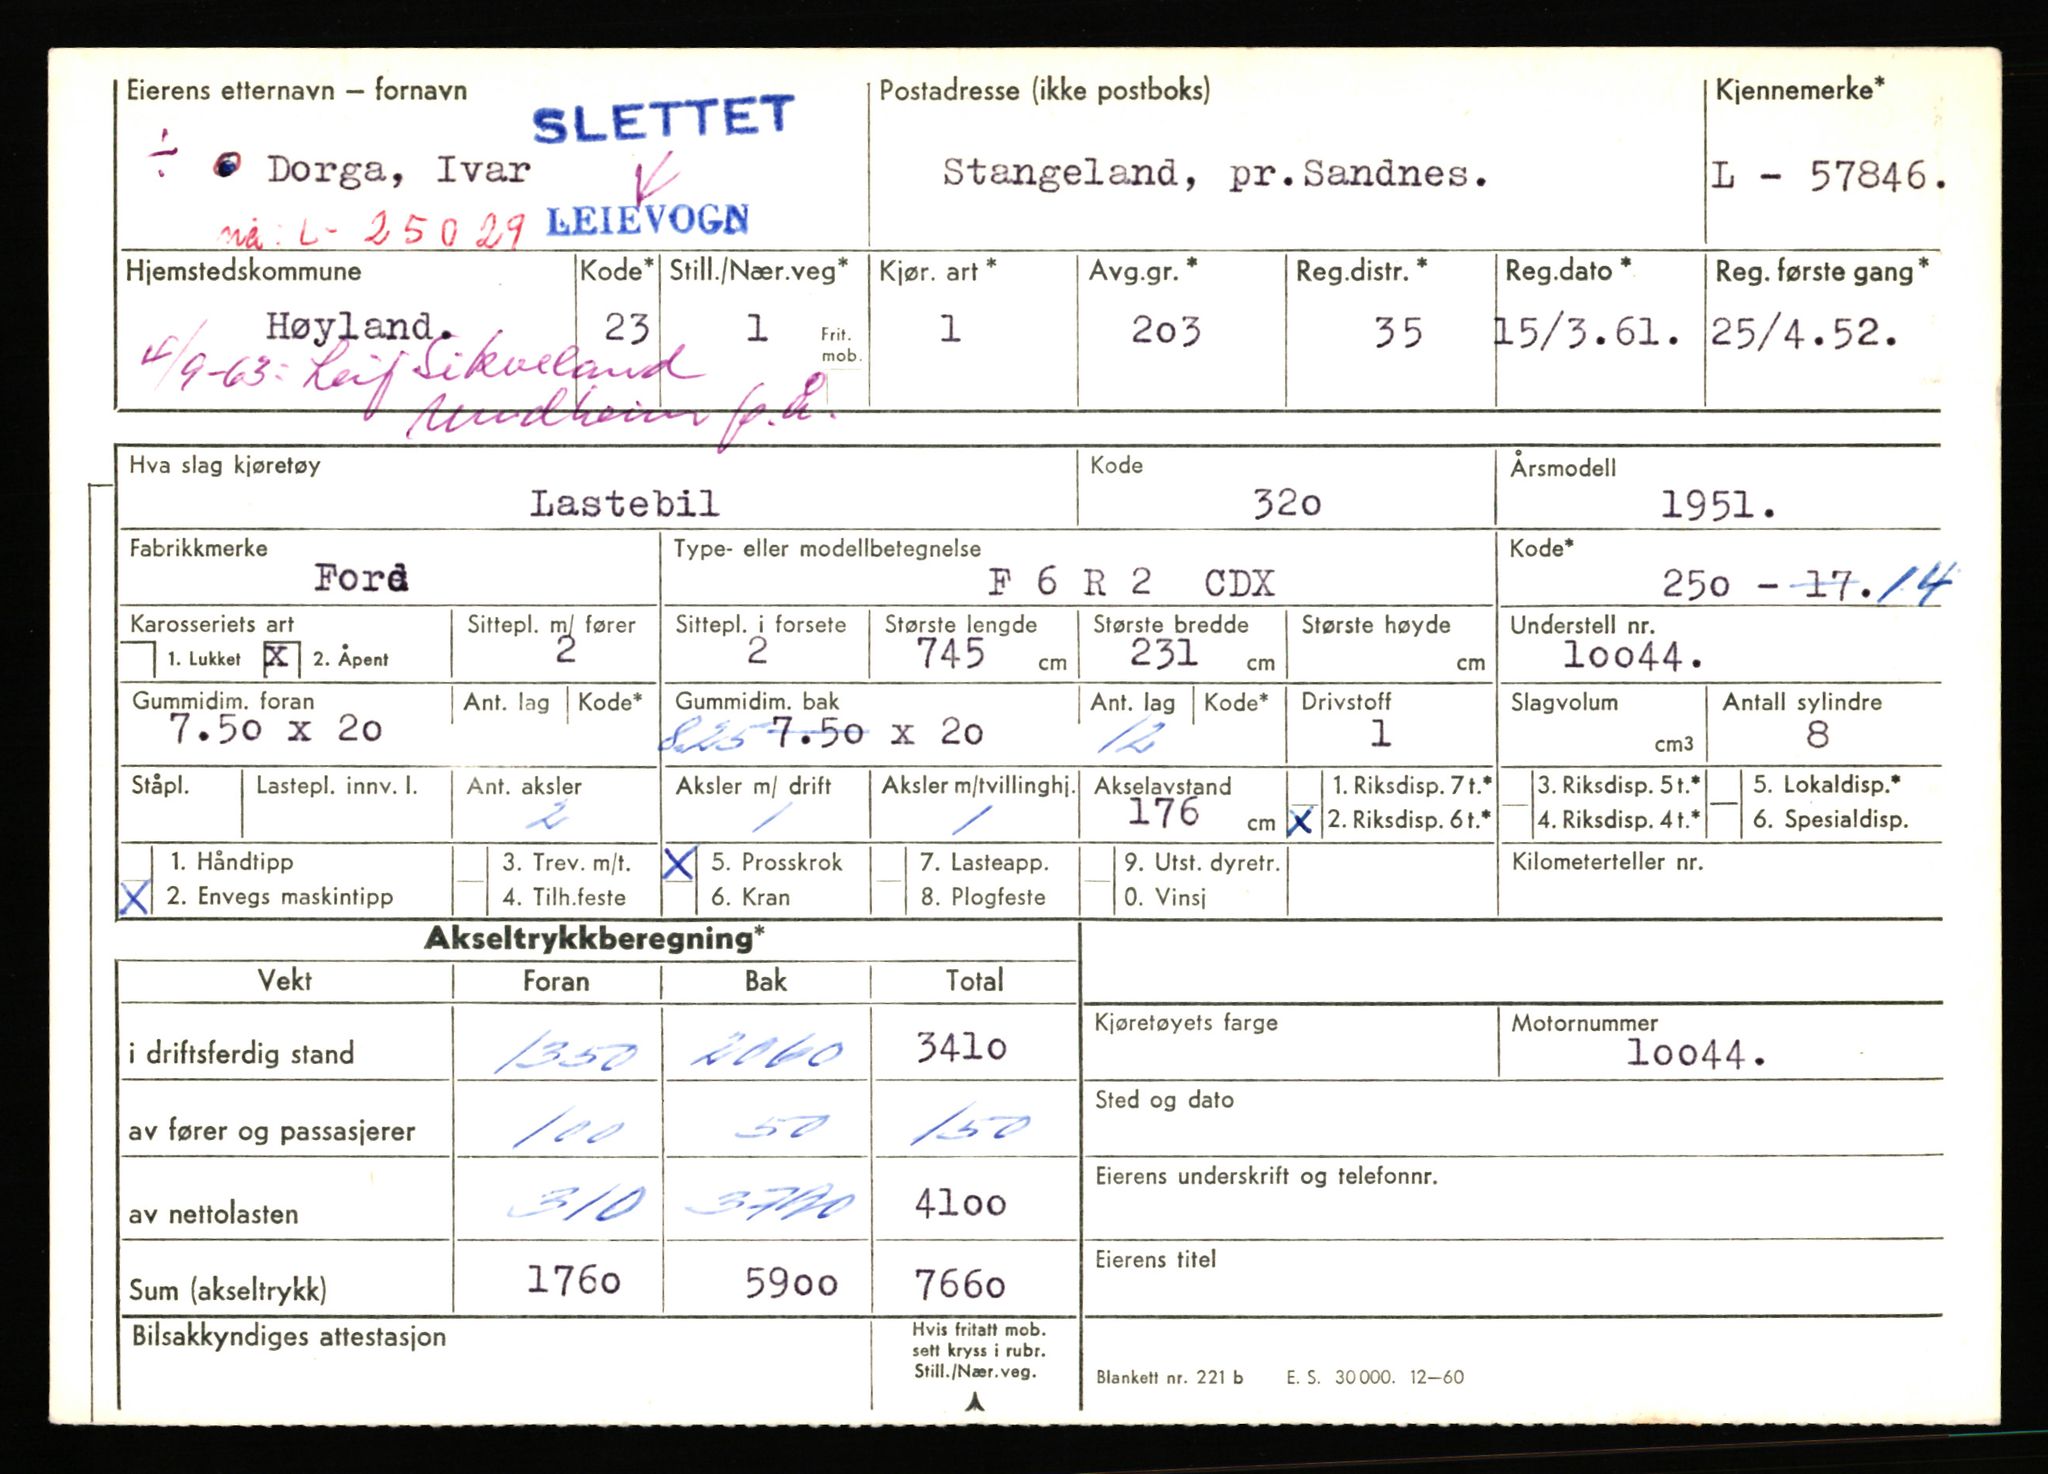 Eierens etternavn – fornavn
SLETTET
Postadresse (ikke postboks)
Kjennemerke*
÷ Dorga, Ivar
Stangeland, pr.Sandnes.
L - 57846.
nå: L- 25029 LEIEVOGN
Hjemstedskommune Kode* Still./Nær.veg* Kjør. art* Avg.gr.* Reg.distr.* Reg.dato* Reg. første gang*
Høyland. 23 1 Frit. mob. 1 2o3 35 15/3.61. 25/4.52.
4/9-63: Leif Sikveland
Undheim p.å.
Hva slag kjøretøy Kode Årsmodell
Lastebil 32o 1951.
Fabrikkmerke Type- eller modellbetegnelse Kode*
Ford F 6 R 2 CDX 25o - 17. 14
Karosseriets art Sittepl. m/ fører Sittepl. i forsete Største lengde Største bredde Største høyde Understell nr.
1. Lukket X 2. Åpent 2 2 745 cm 231 cm cm 1oo44.
Gummidim. foran Ant. lag Kode* Gummidim. bak Ant. lag Kode* Drivstoff Slagvolum Antall sylindre
7.5o x 2o 825 7.5o x 2o 12 1 cm3 8
Ståpl. Lastepl. innv. l. Ant. aksler Aksler m/ drift Aksler m/tvillinghj. Akselavstand 1. Riksdisp. 7 t.* 3. Riksdisp. 5 t.* 5. Lokaldisp.*
2 1 1 176 cm X 2. Riksdisp. 6 t.* 4. Riksdisp. 4 t.* 6. Spesialdisp.
1. Håndtipp 3. Trev. m/t. X 5. Prosskrok 7. Lasteapp. 9. Utst. dyretr. Kilometerteller nr.
X 2. Envegs maskintipp 4. Tilh.feste 6. Kran 8. Plogfeste 0. Vinsj
Akseltrykkberegning*
Vekt Foran Bak Total
Kjøretøyets farge Motornummer
i driftsferdig stand 1350 2060 341o
1oo44.
Sted og dato
av fører og passasjerer 100 50 150
Eierens underskrift og telefonnr.
av nettolasten 310 3790 41oo
Eierens titel
Sum (akseltrykk) 176o 59oo 766o
Bilsakkyndiges attestasjon
Hvis fritatt mob.
sett kryss i rubr.
Still./Nær.veg.
Blankett nr. 221 b E. S. 30 000. 12–60